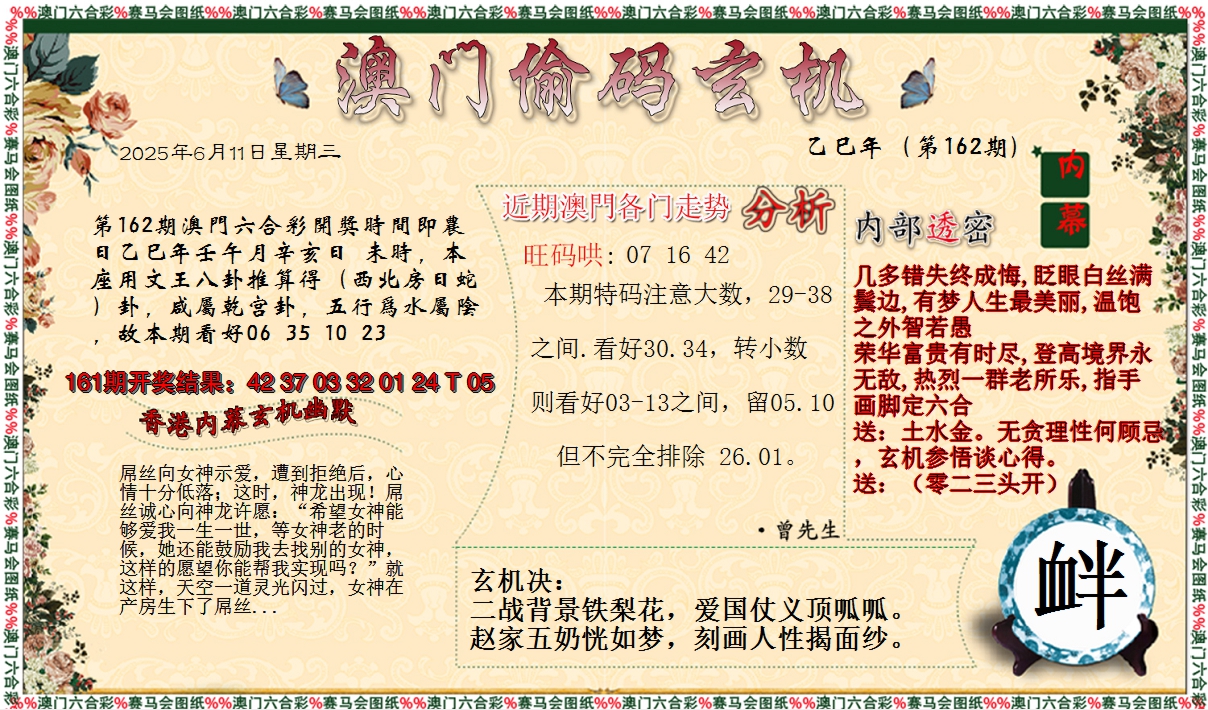 %%澳门六合彩%赛马会图纸%%澳门六合彩%赛马会图纸%%澳门六合彩%赛马会图纸%%澳门六合彩%赛马会图纸%%澳门六合彩%赛马会图纸%%澳门六合彩%赛马会图纸%%
澳门偷码玄机
2025年6月11日星期三
乙巳年（第162期）
内幕
第162期澳門六合彩開獎時間即農
日乙巳年壬午月辛亥日 未時，本
座用文王八卦推算得（西北房日蛇
）卦，咸屬乾宫卦，五行爲水屬陰
，故本期看好06 35 10 23
161期开奖结果：42 37 03 32 01 24 T 05
香港内幕玄机幽默
屌丝向女神示爱，遭到拒绝后，心
情十分低落；这时，神龙出现！屌
丝诚心向神龙许愿：“希望女神能
够爱我一生一世，等女神老的时
候，她还能鼓励我去找别的女神，
这样的愿望你能帮我实现吗？”就
这样，天空一道灵光闪过，女神在
产房生下了屌丝...
近期澳門各门走势 分析
旺码哄: 07 16 42
本期特码注意大数，29-38
之间.看好30.34，转小数
则看好03-13之间，留05.10
但不完全排除 26.01。
·曾先生
内部透密
几多错失终成悔,眨眼白丝满
鬓边,有梦人生最美丽,温饱
之外智若愚
荣华富贵有时尽,登高境界永
无敌,热烈一群老所乐,指手
画脚定六合
送：土水金。无贪理性何顾忌
，玄机参悟谈心得。
送：（零二三头开）
玄机决：
二战背景铁梨花，爱国仗义顶呱呱。
赵家五奶恍如梦，刻画人性揭面纱。
衅
%%澳门六合彩%赛马会图纸%%澳门六合彩%赛马会图纸%%澳门六合彩%赛马会图纸%%澳门六合彩%赛马会图纸%%澳门六合彩%赛马会图纸%%澳门六合彩%赛马会图纸%%